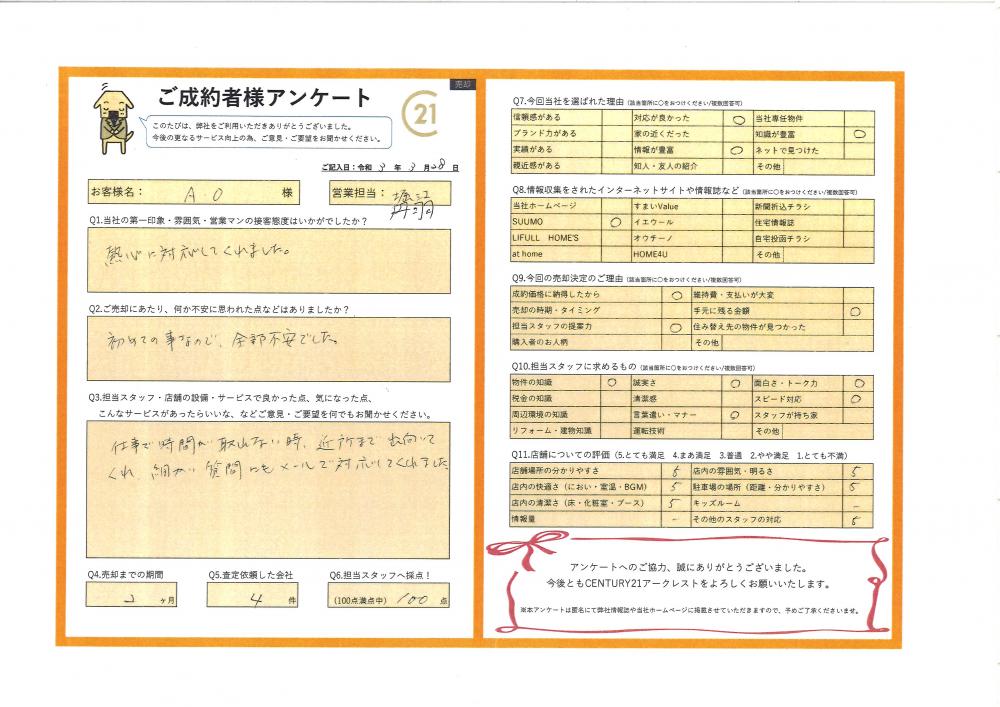 売却
ご成約者様アンケート
21
このたびは、弊社をご利用いただきありがとうございました。
今後の更なるサービス向上の為、ご意見・ご要望をお聞かせください。
ご記入日：令和 3 年 3 月 28 日
お客様名： A O 様
営業担当： 堀江
Q1.当社の第一印象・雰囲気・営業マンの接客態度はいかがでしたか？
熱心に対応してくれました。
Q2.ご売却にあたり、何か不安に思われた点などはありましたか？
初めての事なので、全部不安でした。
Q3.担当スタッフ・店舗の設備・サービスで良かった点、気になった点、
こんなサービスがあったらいいな、などご意見・ご要望を何でもお聞かせください。
仕事で時間が取れない時、近所まで出向いて
くれ、細かい質問にもメールで対応してくれました
Q4.売却までの期間
2 ヶ月
Q5.査定依頼した会社
4 件
Q6.担当スタッフへ採点！
(100点満点中) 100 点
Q7.今回当社を選ばれた理由 (該当箇所に○をおつけください/複数回答可)
信頼感がある 対応が良かった ○ 当社専任物件
ブランド力がある 家の近くだった 知識が豊富 ○
実績がある 情報が豊富 ○ ネットで見つけた
親近感がある 知人・友人の紹介 その他
Q8.情報収集をされたインターネットサイトや情報誌など (該当箇所に○をおつけください/複数回答可)
当社ホームページ すまいValue 新聞折込チラシ
SUUMO ○ イエウール 住宅情報誌
LIFULL HOME'S オウチーノ 自宅投函チラシ
at home HOME4U その他
Q9.今回の売却決定のご理由 (該当箇所に○をおつけください/複数回答可)
成約価格に納得したから ○ 維持費・支払いが大変
売却の時期・タイミング 手元に残る金額 ○
担当スタッフの提案力 ○ 住み替え先の物件が見つかった
購入者のお人柄 その他
Q10.担当スタッフに求めるもの (該当箇所に○をおつけください/複数回答可)
物件の知識 ○ 誠実さ ○ 面白さ・トーク力 ○
税金の知識 清潔感 スピード対応 ○
周辺環境の知識 言葉遣い・マナー ○ スタッフが持ち家
リフォーム・建物知識 運転技術 その他
Q11.店舗についての評価 (5.とても満足 4.まあ満足 3.普通 2.やや満足 1.とても不満)
店舗場所の分かりやすさ 5 店内の雰囲気・明るさ 5
店内の快適さ（におい・室温・BGM） 5 駐車場の場所（距離・分かりやすさ） 5
店内の清潔さ（床・化粧室・ブース） 5 キッズルーム -
情報量 - その他のスタッフの対応 5
アンケートへのご協力、誠にありがとうございました。
今後ともCENTURY21アークレストをよろしくお願いいたします。
※本アンケートは匿名にて弊社情報誌や当社ホームページに掲載させていただきますので、予めご了承くださいませ。